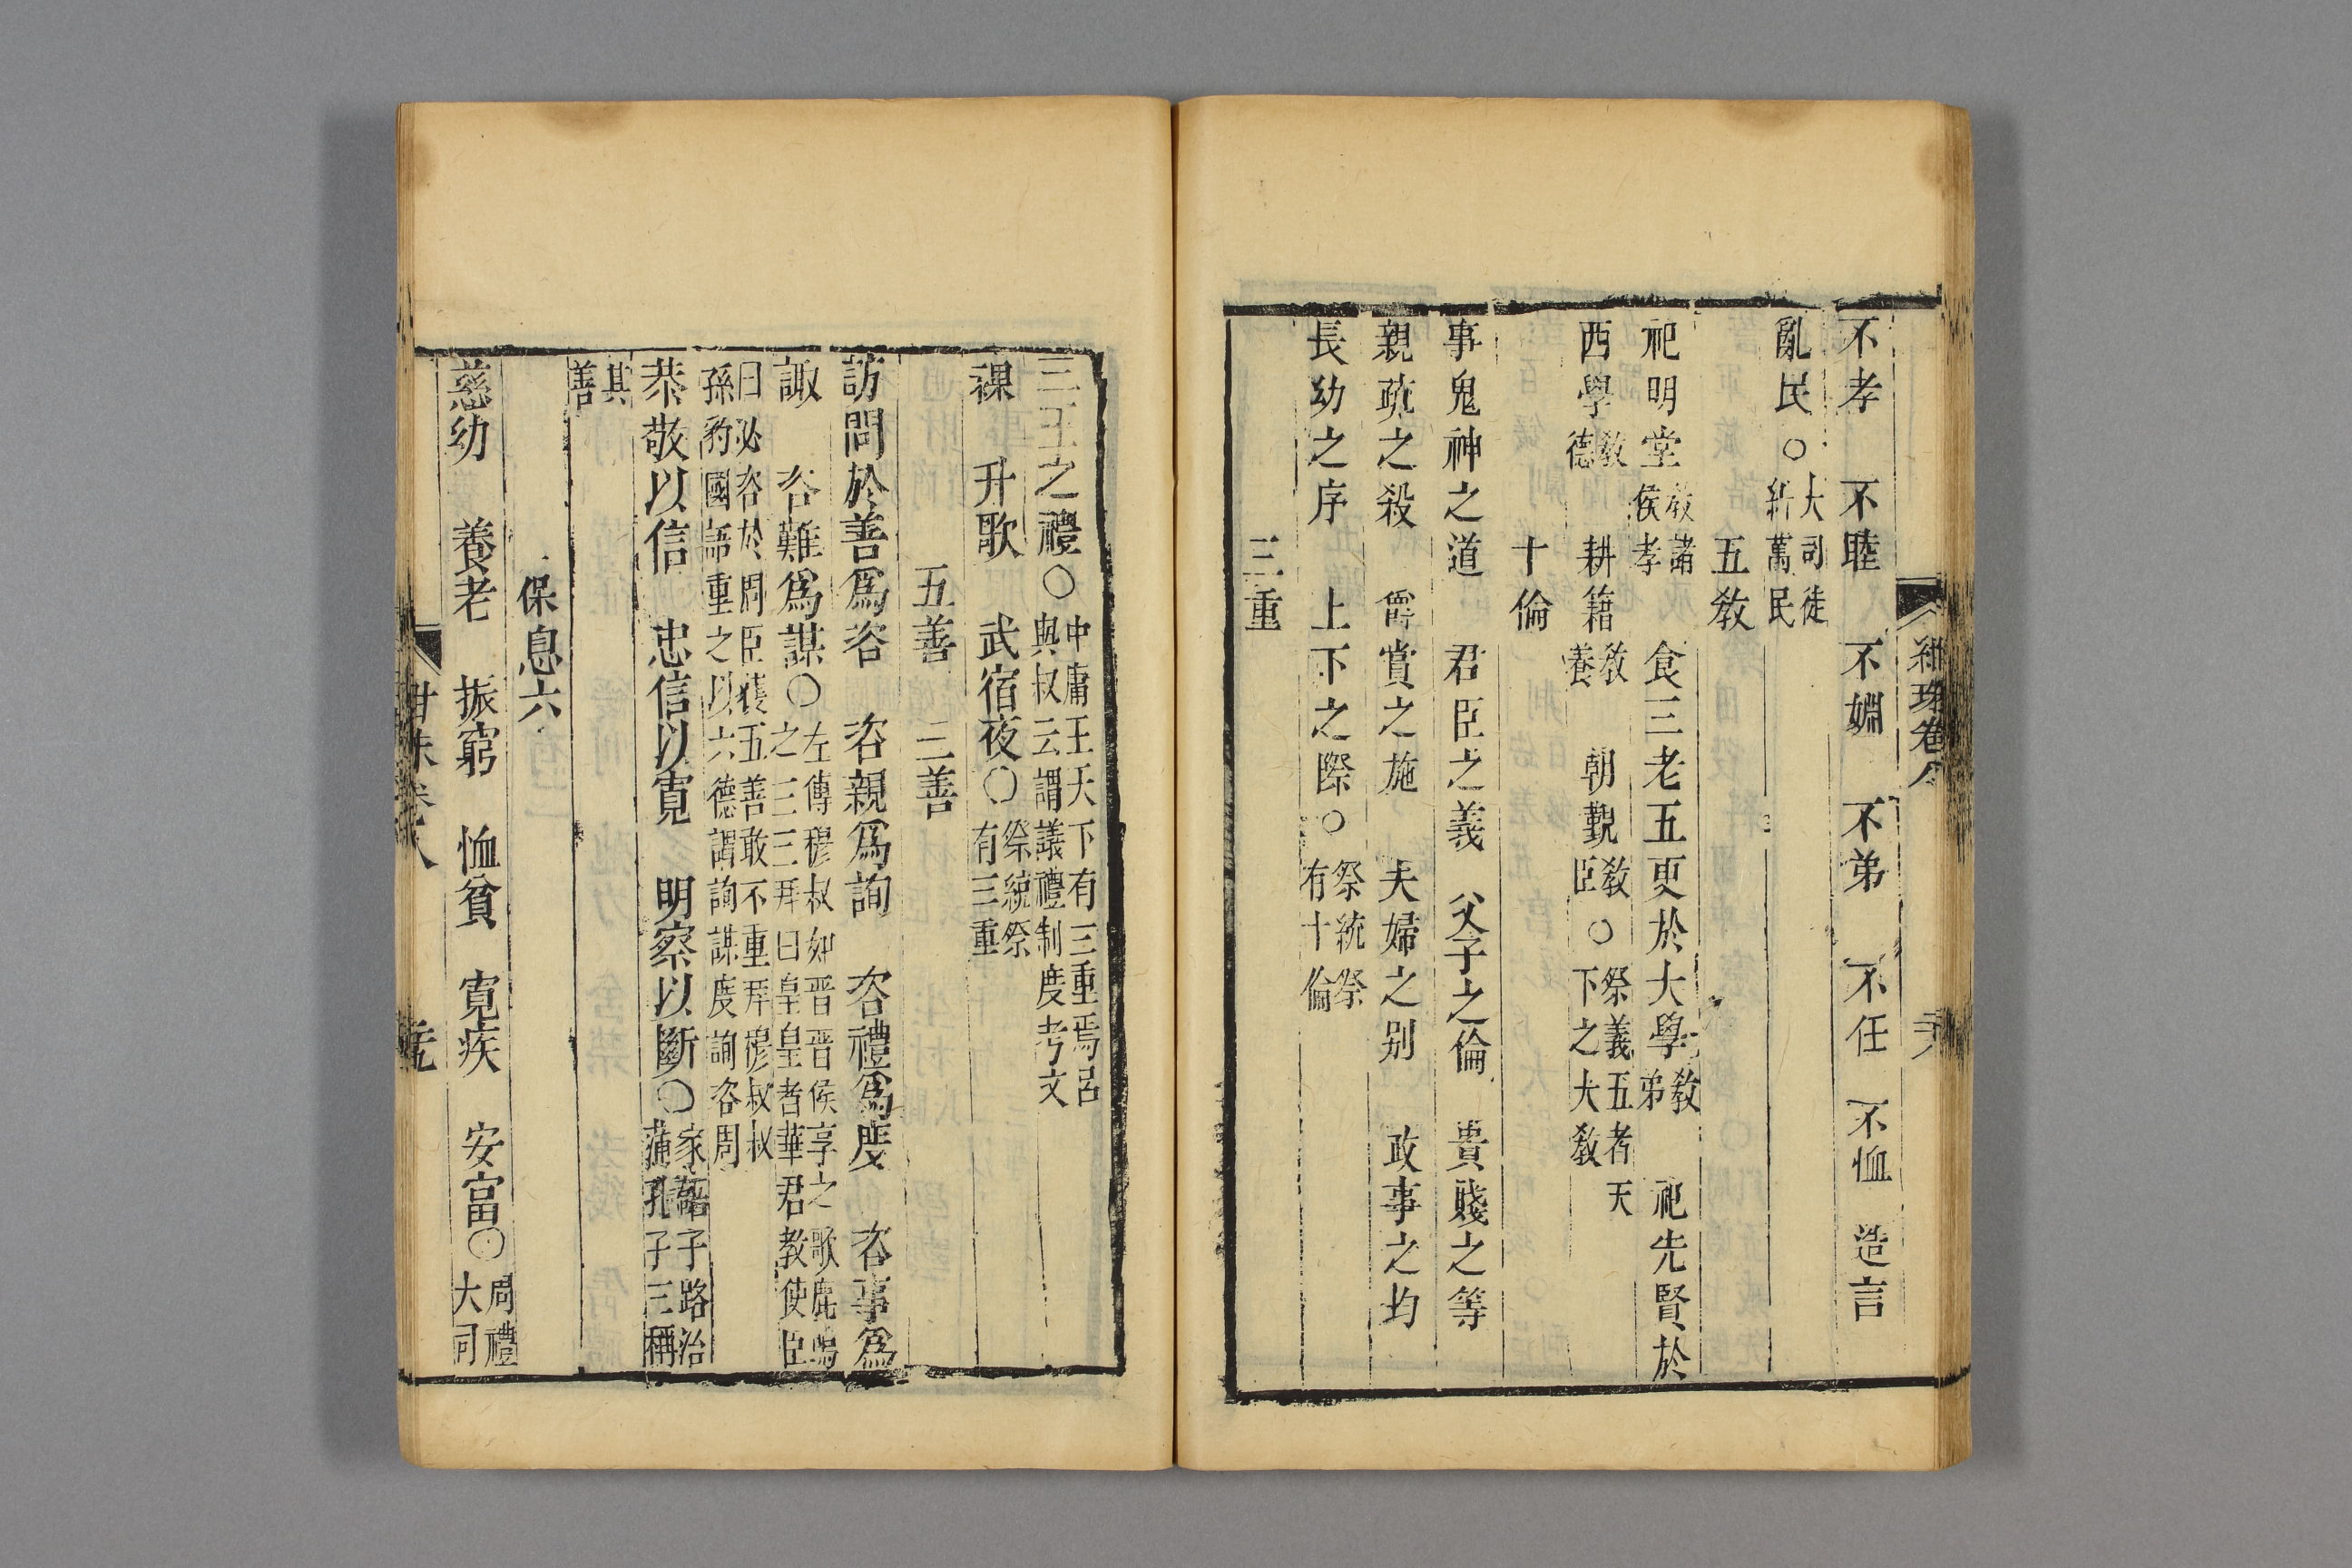 不孝　不睦　不婣　不弟　不任　不恤　造言
亂民○大司徒糾萬民
五敎
祀明堂敎諸侯孝　食三老五更於大學敎弟　祀先賢於
西學敎德　耕籍敎養　朝覲敎臣○祭義五者天下之大敎
十倫
事鬼神之道　君臣之義　父子之倫　貴賤之等
親疏之殺　爵賞之施　夫婦之別　政事之均
長幼之序　上下之際○祭統祭有十倫
三重
三王之禮○中庸王天下有三重焉呂與叔云謂議禮制度考文
祼　升歌　武宿夜○祭統祭有三重
五善　三善
訪問於善爲咨　咨親爲詢　咨禮爲度　咨事爲
諏　咨難爲謀○左傳穆叔如晋晋侯享之歌鹿鳴之三三拜曰皇皇者華君教使臣
曰必咨於周臣獲五善敢不重拜穆叔叔孫豹國語重之以六德謂詢謀度諏咨周
恭敬以信　忠信以寬　明察以斷○家語子路治蒲孔子三稱
其善
保息六
慈幼　養老　振窮　恤貧　寬疾　安富○周禮大司